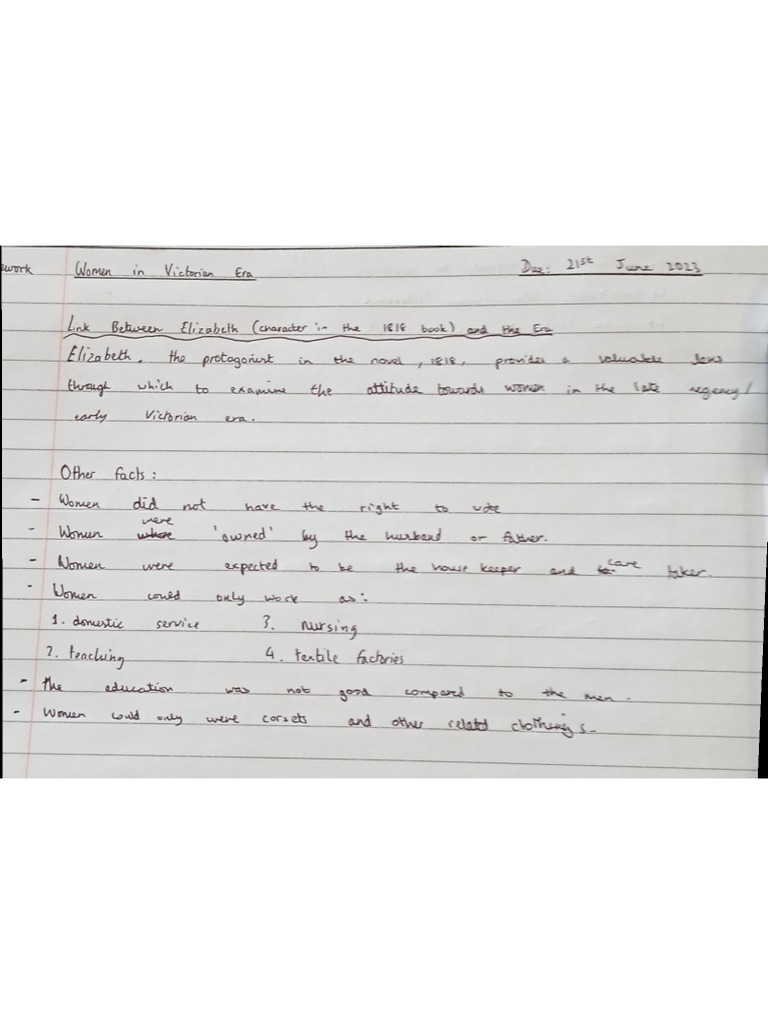 ework Women in Victorian Era Due: 21st June 2023
Link Between Elizabeth (character in the 1818 book) and the Era
Elizabeth, the protagonist in the novel, 1818, provides a valuable lens
through which to examine the attitude towards women in the late regency/
early Victorian era.
Other facts:
- Women did not have the right to vote
- Women were 'owned' by the husband or father.
- Women were expected to be the house keeper and care taker.
- Women could only work as:
1. domestic service 3. nursing
2. teaching 4. textile factories
- The education was not good compared to the men.
- Women could only were corsets and other related clothings.